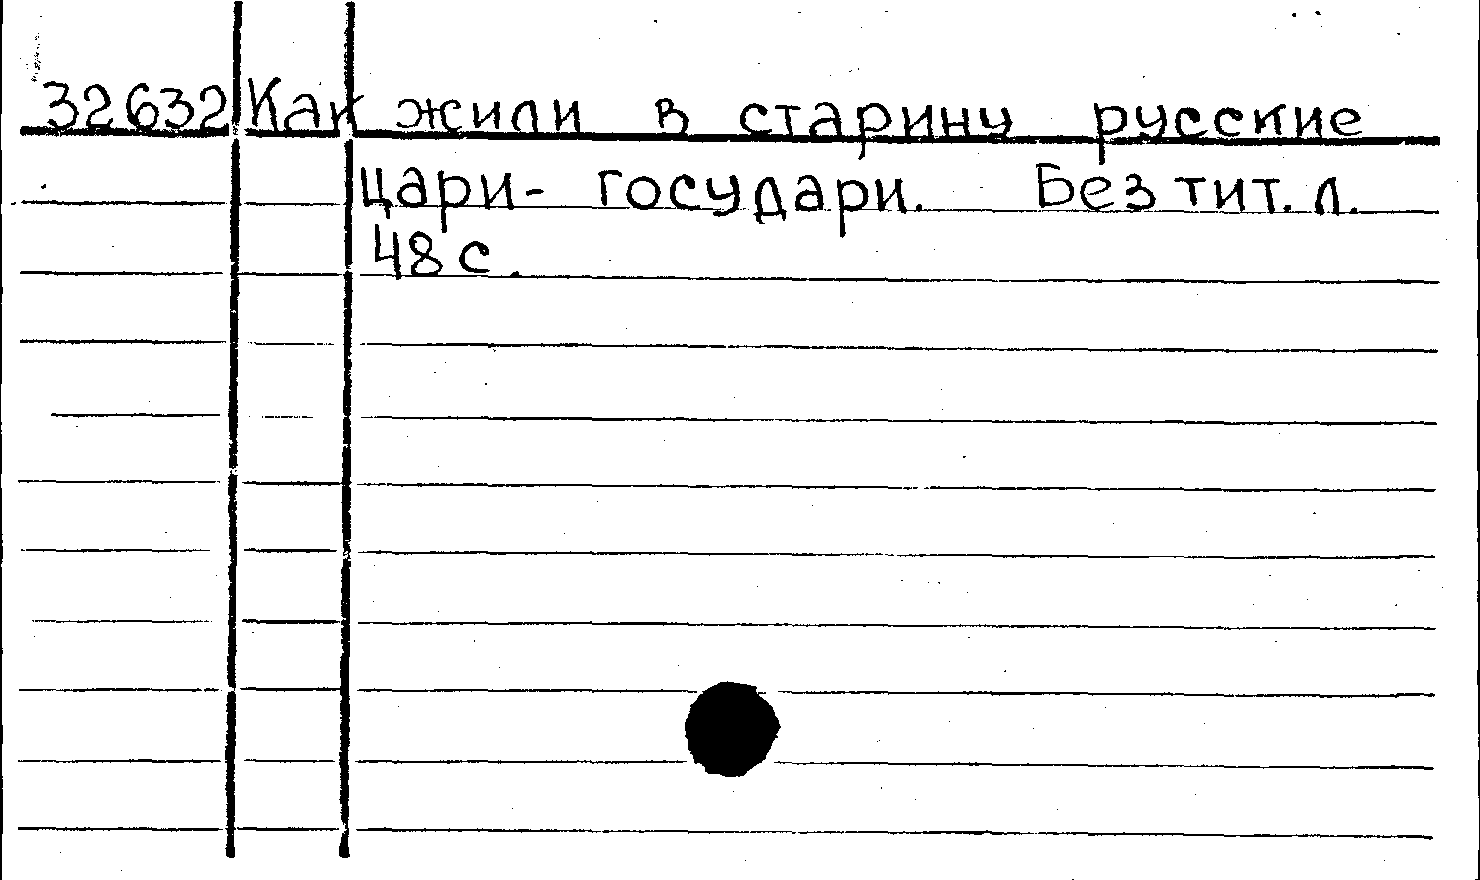 32632 Как жили в старину русские
цари- государи. Без тит. л.
48 с.